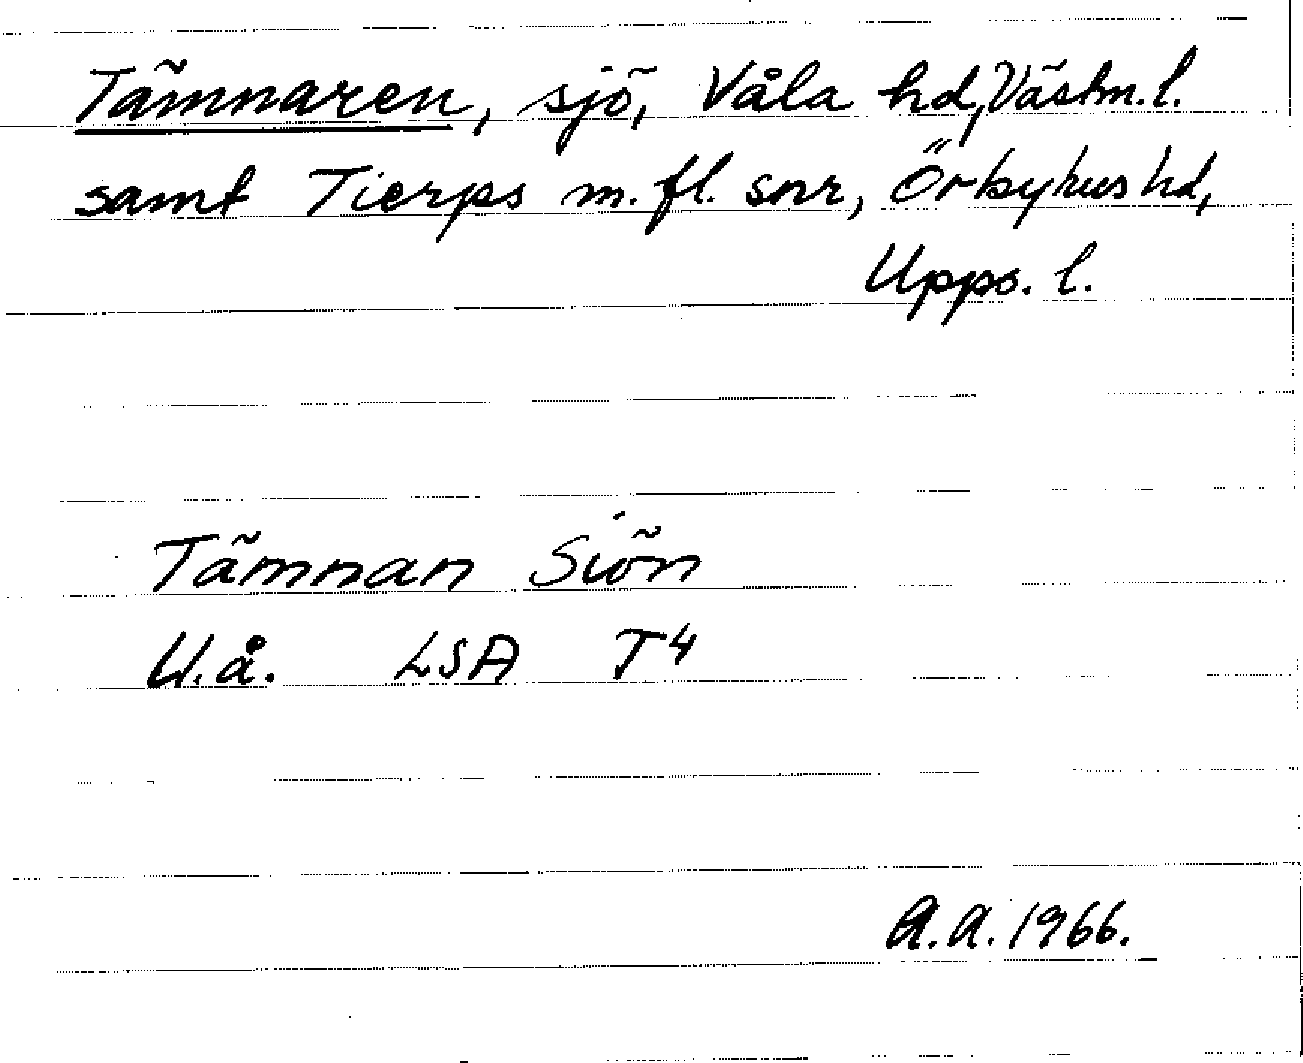 Tämnaren, sjö, Våla hd, Västm. l.
samt Tierps m. fl. snr, Örbyhus hd,
Upps. l.
Tämnan Siön
U.å. LSA T4
A.A. 1966.